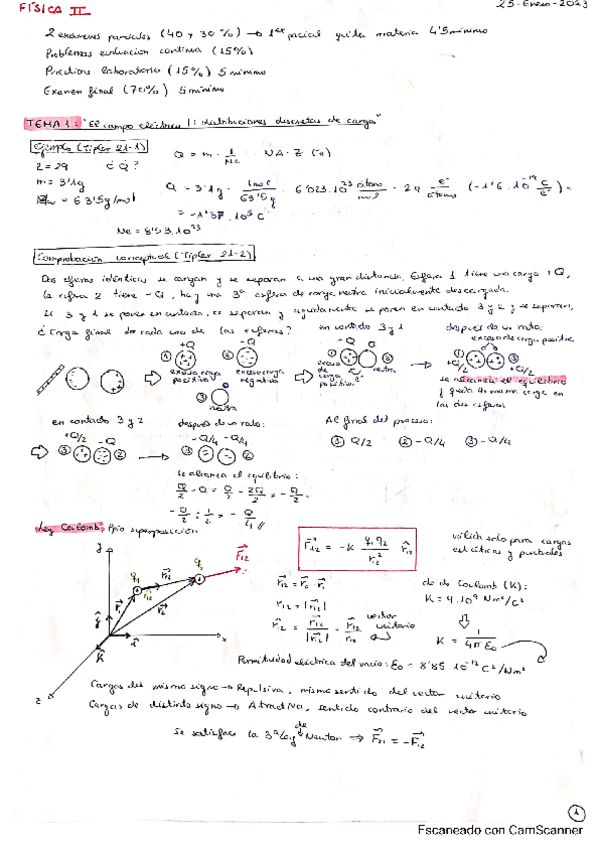 FÍSICA II
25-Enero-2023
2 exámenes parciales (40 y 30%) → 1er parcial quita materia 4'5 mínimo
Problemas evaluación continua (15%)
Prácticas laboratorio (15%) 5 mínimo
Examen final (70%) 5 mínimo
TEMA 1: "El campo eléctrico I: distribuciones discretas de carga"
Ejemplo (Tipler 21-1)
Z = 29 ¿Q?
m = 3'1g
= 63'5 g/mol
Q = m · 1/ · NA · Z (-e)
Q = 3'1g · 1mol/63'5g · 6'023·10^23 átomo/mol · 29 e-/átomo (-1'6·10^-19 C/e-) =
= -1'37·10^5 C
Ne = 8'53·10^23
Comprobación conceptual (Tipler 21-2)
Dos esferas idénticas se cargan y se separan a una gran distancia. Esfera 1 tiene una carga +Q,
la esfera 2 tiene -Q, hay una 3ª esfera de carga neutra inicialmente descargada.
Si 3 y 1 se ponen en contacto, se separan y igualmente se ponen en contacto 3 y 2 y se separan,
¿Carga final de cada una de las esferas?
en contacto 3 y 1
después de un rato:
exceso de carga positiva
+Q -Q
① ②
exceso carga positiva
exceso carga negativa
③
neutra
exceso de carga positiva
neutra
① ③
+Q/2 +Q/2
se alcanza el equilibrio
y queda la misma carga en
las dos esferas
en contacto 3 y 2
+Q/2 -Q
③ ②
después de un rato:
-Q/4 -Q/4
③ ②
se alcanza el equilibrio:
Q/2 - Q = Q/2 - 2Q/2 = -Q/2
-Q/2 : 1/2 = -Q/4 //
Al final del proceso:
① Q/2 ② -Q/4 ③ -Q/4
Ley Coulomb, Ppio superposición
y
x
z
F12 = -K q1q2/r² r12
válida solo para cargas
estáticas y puntuales
r12 = |r12|
r12 = r12/|r12| = r12/r12
vector unitario
cte de Coulomb (K):
K = 9·10^9 Nm²/C²
K = 1/4πε0
Permitividad eléctrica del vacío: ε0 = 8'85·10^-12 C²/Nm²
Cargas del mismo signo → Repulsiva, mismo sentido del vector unitario
Cargas de distinto signo → Atractiva, sentido contrario del vector unitario
Se satisface la 3ª ley de Newton ⇒ F21 = -F12
1
Escaneado con CamScanner